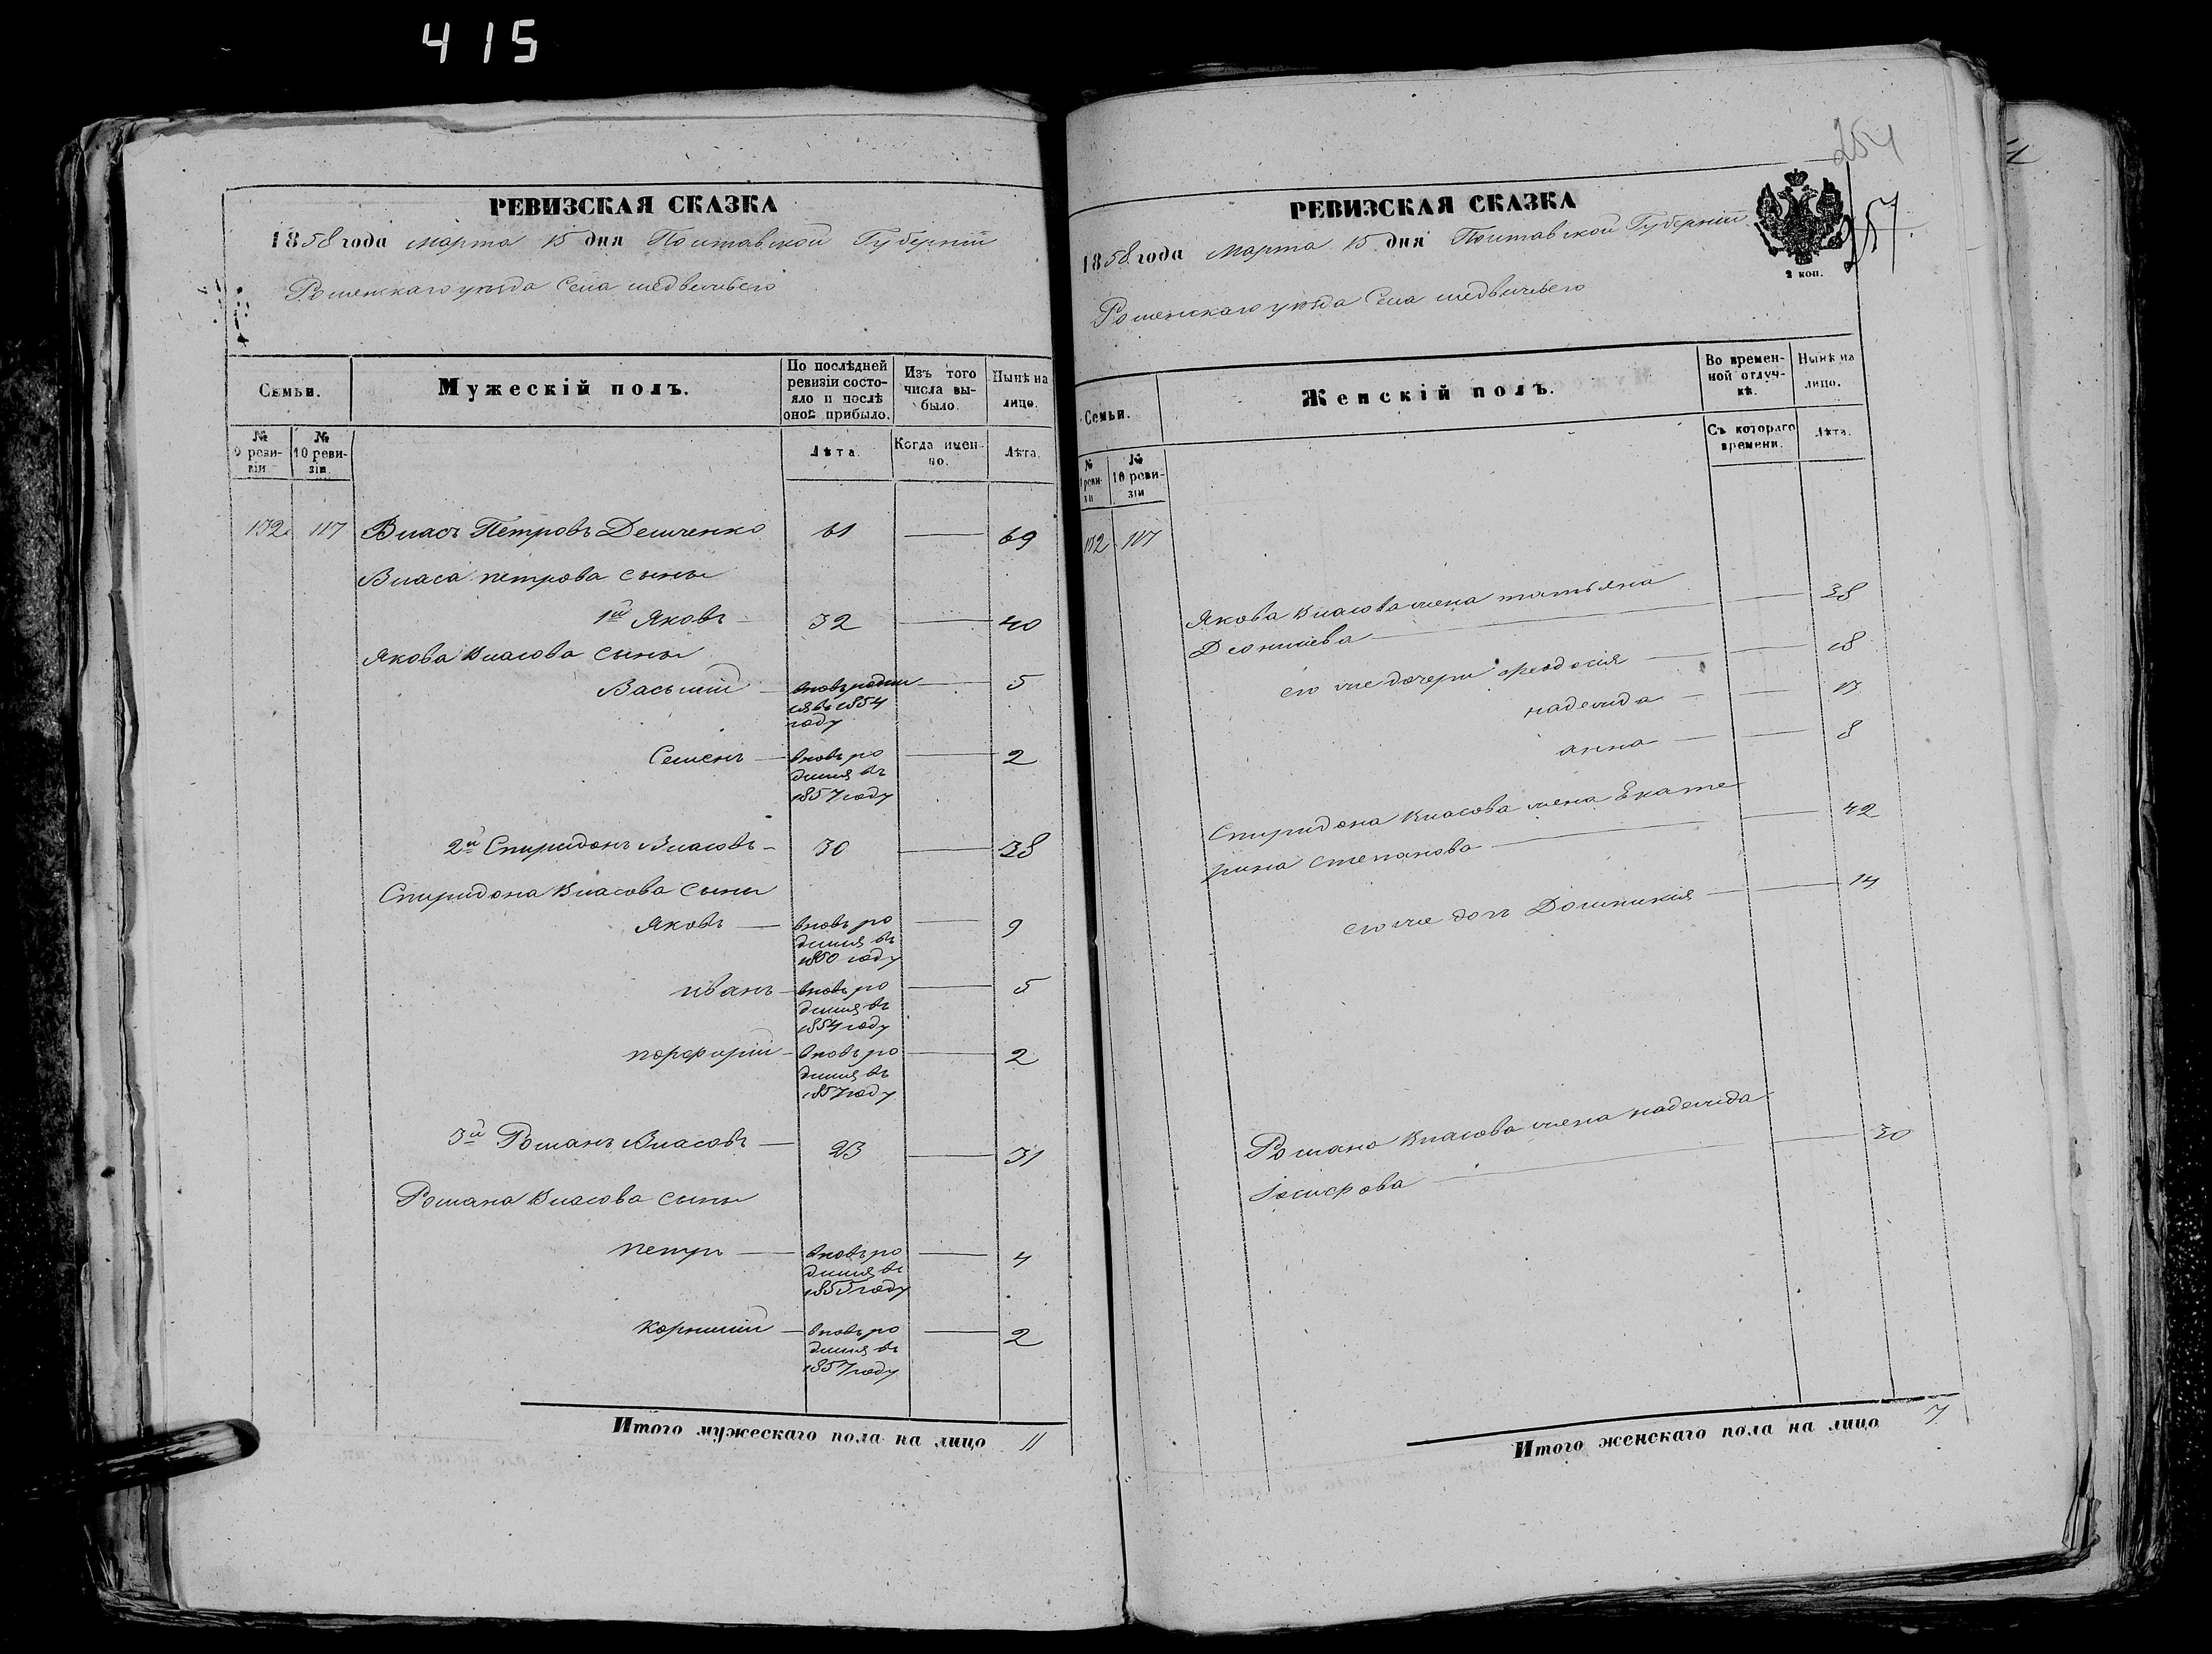 415
РЕВИЗСКАЯ СКАЗКА
1858 года Марта 15 дня Полтавской Губерніи
Роменскаго уѣзда Села Медвежьего
Семьи.
Мужескій полъ.
По послѣдней ревизіи состояло и послѣ оной прибыло.
Изъ того числа выбыло.
Нынѣ на лицо.
№ 9 ревизіи
№ 10 ревизіи
Лѣта.
Когда именно.
Лѣта.
132 117 Власъ Петровъ Демченко 61 — 69
Власа петрова сыны
1й Яковъ 32 — 40
Якова Власова сыны
Василій — вновь родился въ 1854 году — 5
Семенъ — вновь родился въ 1857 году — 2
2й Спиридонъ Власовъ — 30 — 38
Спиридона Власова сыны
Яковъ — вновь родился въ 1850 году — 9
иванъ — вновь родился въ 1854 году — 5
порфирій — вновь родился въ 1857 году — 2
3й Романъ Власовъ — 23 — 31
Романа Власова сыны
петръ — вновь родился въ 1855 году — 4
корнилій — вновь родился въ 1857 году — 2
Итого мужескаго пола на лицо 11
254
257.
РЕВИЗСКАЯ СКАЗКА
1858 года Марта 15 дня Полтавской Губерніи
2 коп.
Роменскаго уѣзда Села Медвежьего
Семьи.
Женскій полъ.
Во временной отлучкѣ.
Нынѣ на лицо.
№ 9 ревизіи
№ 10 ревизіи
Съ котораго времени.
Лѣта.
132 117
Якова Власова жена татьяна
Деонисиева — 38
его же дочери феодосія — 18
надежда — 13
анна — 8
Спиридона Власова жена Екате
рина степанова — 42
его же дочь Домникия — 14
Романа Власова жена надежда
Іосифова — 30
Итого женскаго пола на лицо 7